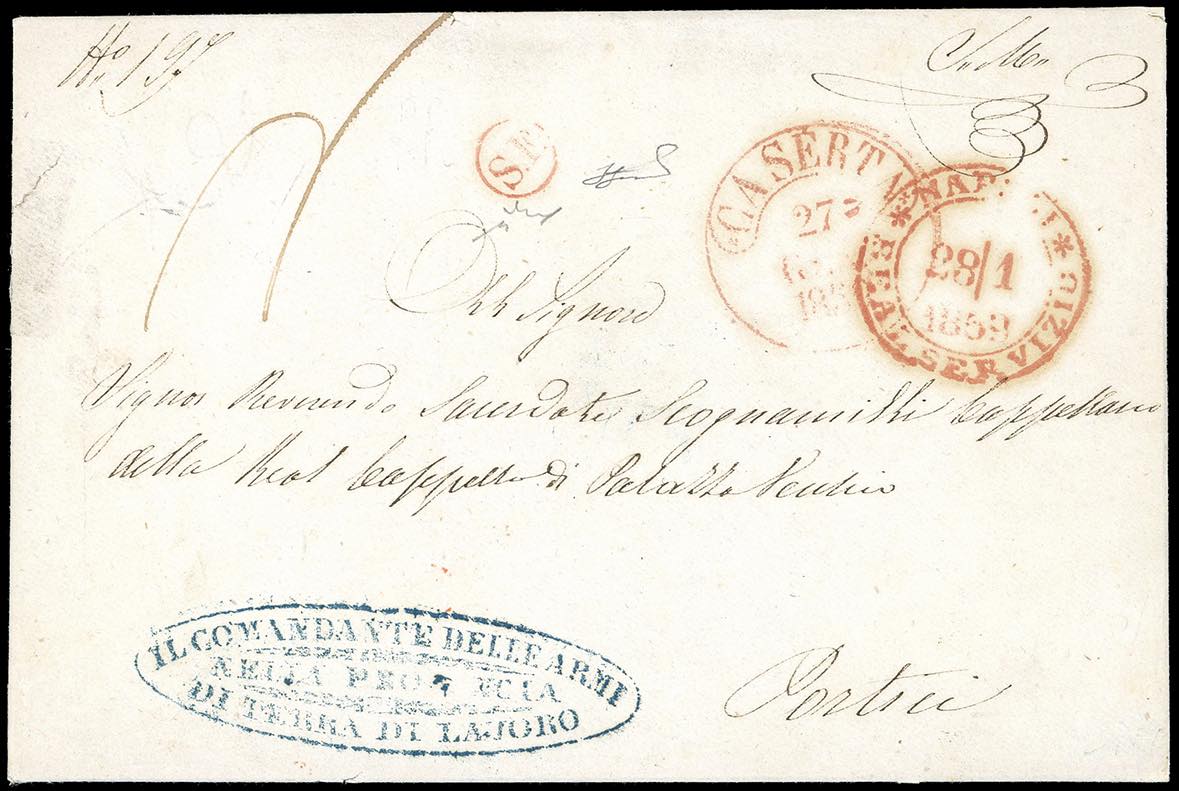 N.° 197
S. M.
S.F.
CASERTA
27
185
NAP
28/1
1859
REAL SERVIZIO
All Signore
Signor Reverendo Sacerdote Scognamilli Cappellano
della Real Cappella di Palazzo Vecchio
Portici
IL COMANDANTE DELLE ARMI
NELLA PROVINCIA
DI TERRA DI LAVORO